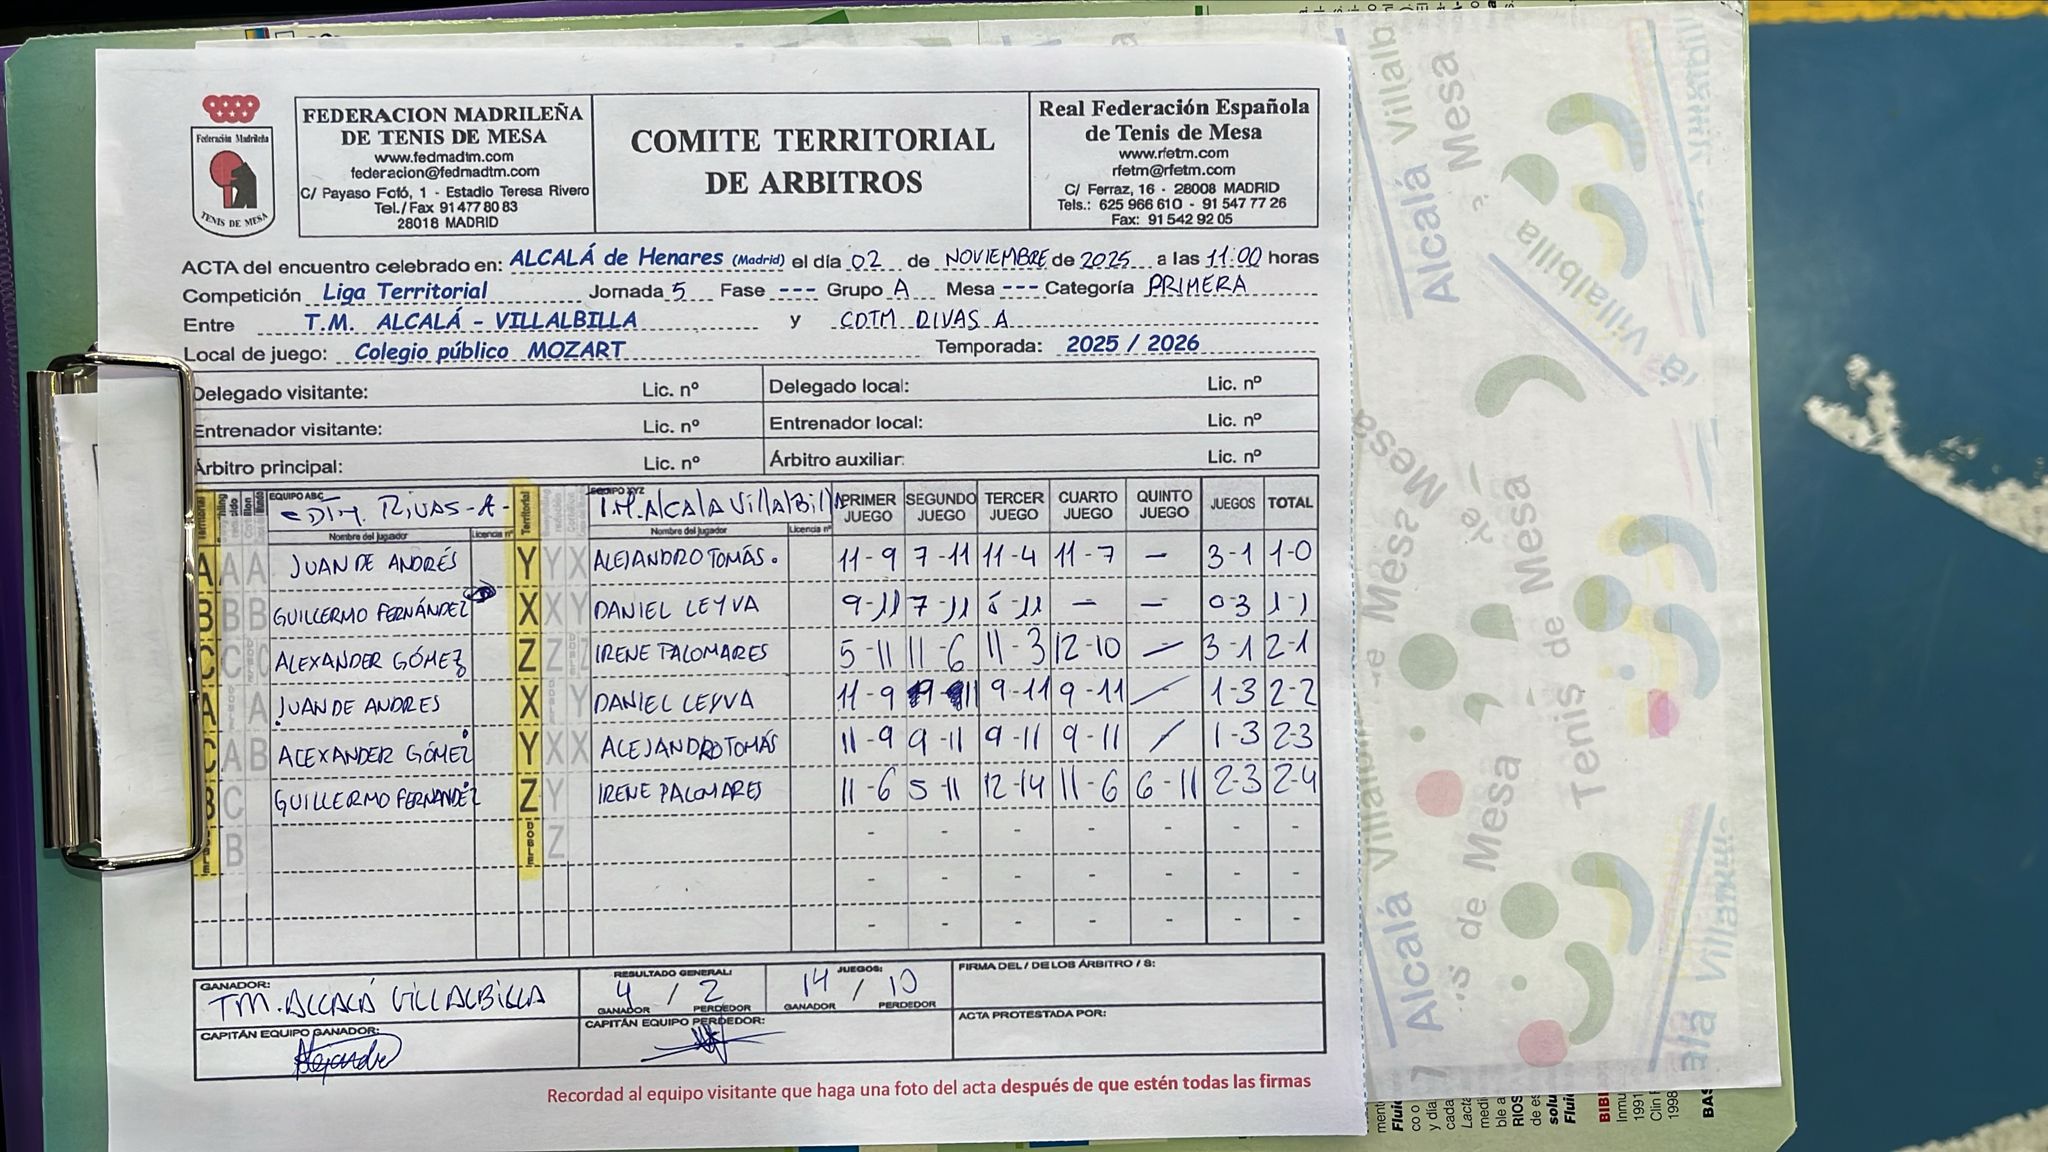 Federación Madrileña
TENIS DE MESA
FEDERACION MADRILEÑA
DE TENIS DE MESA
www.fedmadtm.com
federacion@fedmadtm.com
C/ Payaso Fofó, 1 - Estadio Teresa Rivero
Tel./Fax 91 477 80 83
28018 MADRID
COMITE TERRITORIAL
DE ARBITROS
Real Federación Española
de Tenis de Mesa
www.rfetm.com
rfetm@rfetm.com
C/ Ferraz, 16 - 28008 MADRID
Tels.: 625 966 610 - 91 547 77 26
Fax: 91 542 92 05
ACTA del encuentro celebrado en: ALCALÁ de Henares (Madrid) el día 02 de NOVIEMBRE de 2025 a las 11:00 horas
Competición Liga Territorial Jornada 5 Fase --- Grupo A Mesa --- Categoría PRIMERA
Entre T.M. ALCALÁ - VILLALBILLA y CDTM RIVAS A
Local de juego: Colegio público MOZART Temporada: 2025 / 2026
Delegado visitante: Lic. nº Delegado local: Lic. nº
Entrenador visitante: Lic. nº Entrenador local: Lic. nº
Árbitro principal: Lic. nº Árbitro auxiliar: Lic. nº
Territorial EQUIPO ABC RIVAS -A- Territorial EQUIPO XYZ T.M. Alcala Villalbilla PRIMER JUEGO SEGUNDO JUEGO TERCER JUEGO CUARTO JUEGO QUINTO JUEGO JUEGOS TOTAL
Nombre del jugador Licencia nº Nombre del jugador Licencia nº
A A A JUAN DE ANDRÉS Y Y X ALEJANDRO TOMÁS. 11-9 7-11 11-4 11-7 - 3-1 1-0
B B B GUILLERMO FERNÁNDEZ X X Y DANIEL LEYVA 9-11 7-11 5-11 - - 0-3 1-1
C C C ALEXANDER GÓMEZ Z Z Z IRENE PALOMARES 5-11 11-6 11-3 12-10 - 3-1 2-1
A A JUAN DE ANDRES X Y DANIEL LEYVA 11-9 9-11 9-11 9-11 - 1-3 2-2
C A B ALEXANDER GÓMEZ Y X X ALEJANDRO TOMÁS 11-9 9-11 9-11 9-11 / 1-3 2-3
B C GUILLERMO FERNANDEZ Z Y IRENE PALOMARES 11-6 5-11 12-14 11-6 6-11 2-3 2-4
B Z - - - - - - -
- - - - - - -
- - - - - - -
GANADOR: TM. ALCALÁ VILLALBILLA
RESULTADO GENERAL: 4 / 2
GANADOR PERDEDOR
JUEGOS: 14 / 10
GANADOR PERDEDOR
FIRMA DEL / DE LOS ÁRBITRO / S:
CAPITÁN EQUIPO GANADOR: Alejandro
CAPITÁN EQUIPO PERDEDOR:
ACTA PROTESTADA POR:
Recordad al equipo visitante que haga una foto del acta después de que estén todas las firmas
Alcalá Villalb
Mesa
Villalbilla
Tenis de Mesa
de Mesa
Alcalá